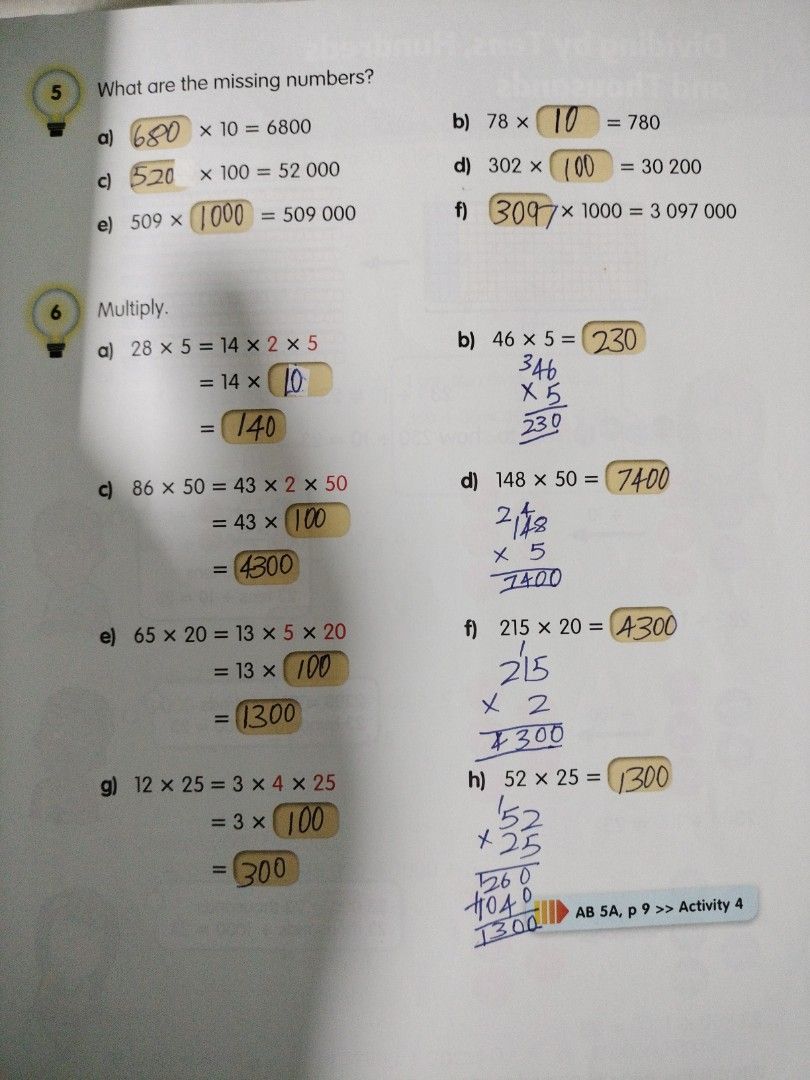 5 What are the missing numbers?
a) 680 × 10 = 6800
b) 78 × 10 = 780
c) 520 × 100 = 52 000
d) 302 × 100 = 30 200
e) 509 × 1000 = 509 000
f) 3097 × 1000 = 3 097 000
6 Multiply.
a) 28 × 5 = 14 × 2 × 5
= 14 × 10
= 140
b) 46 × 5 = 230
346
× 5
230
c) 86 × 50 = 43 × 2 × 50
= 43 × 100
= 4300
d) 148 × 50 = 7400
2 4
148
× 5
7400
e) 65 × 20 = 13 × 5 × 20
= 13 × 100
= 1300
f) 215 × 20 = 4300
1
215
× 2
4300
g) 12 × 25 = 3 × 4 × 25
= 3 × 100
= 300
h) 52 × 25 = 1300
1
52
× 25
260
+1040
1300
AB 5A, p 9 >> Activity 4